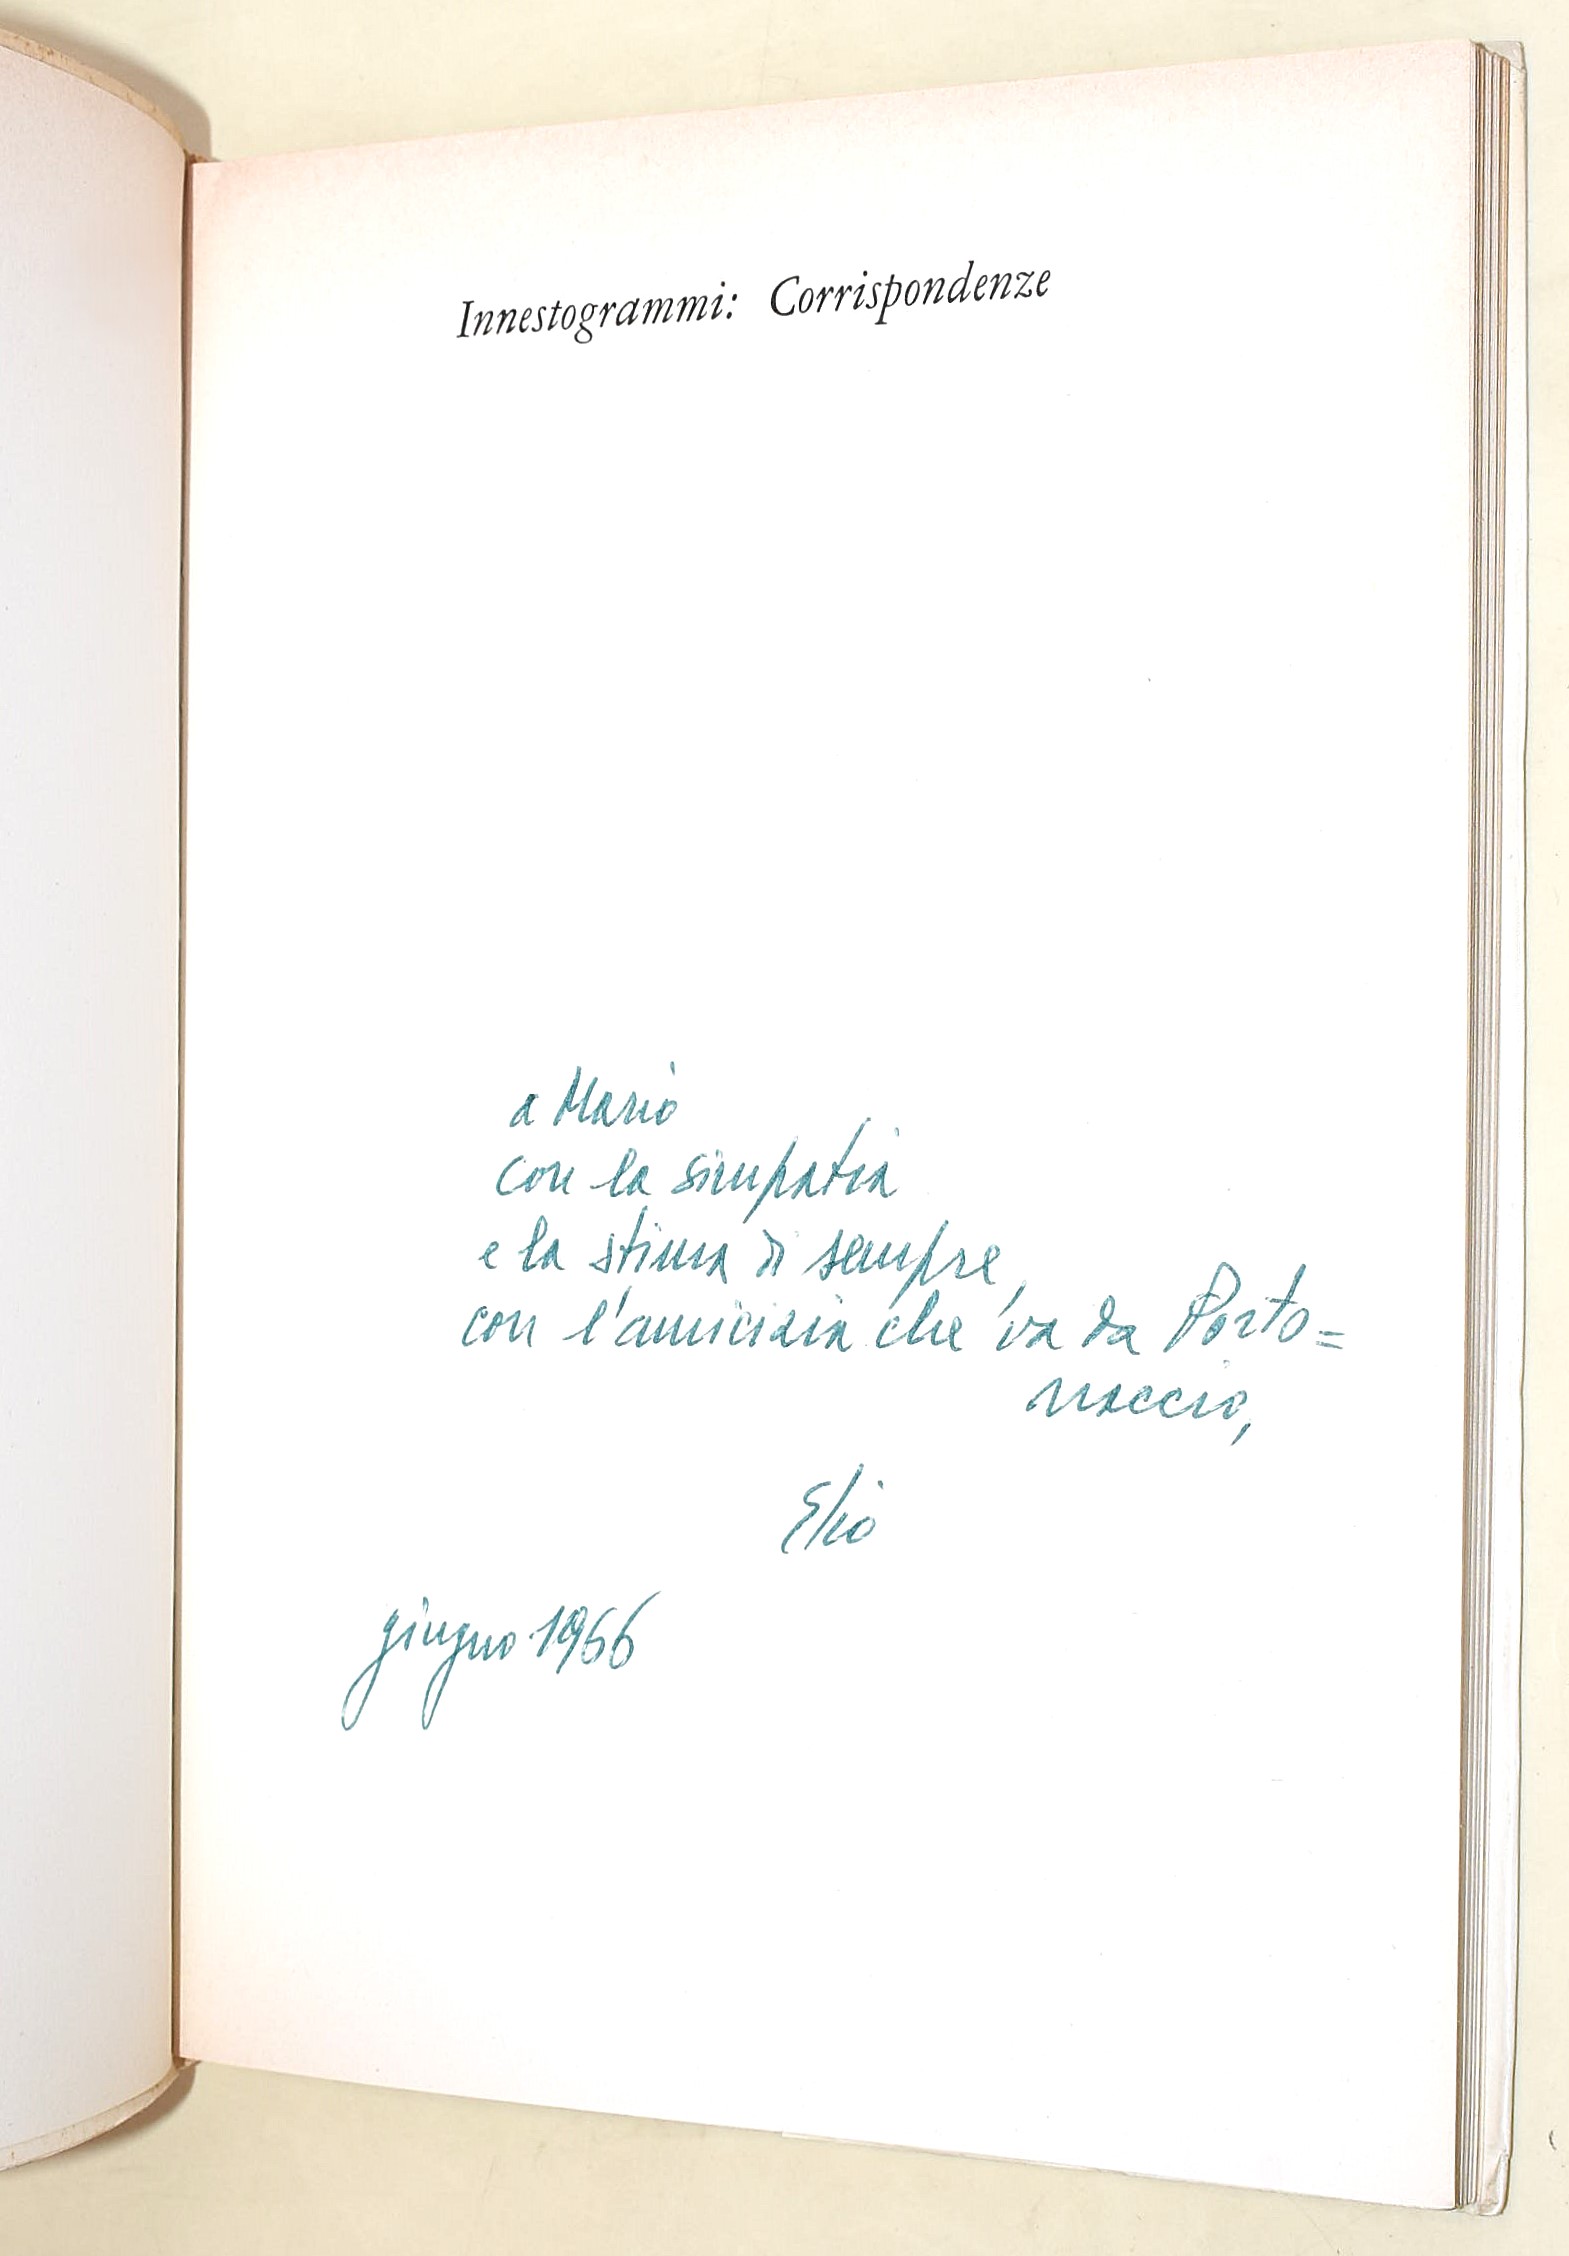 Innestogrammi: Corrispondenze
a Mario
con la simpatia
e la stima di sempre,
con l'amicizia che va da Porto=
naccio,
Elio
giugno 1966